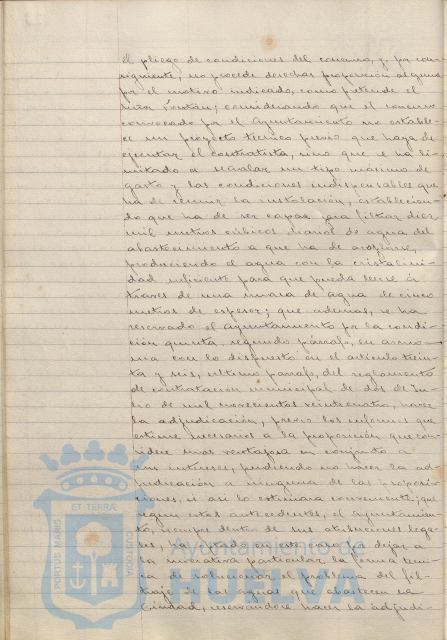 el pliego de condiciones del concurso, y por con-
siguiente, no procede desechar proposición alguna
por el motivo indicado, como pretende el
señor Fontán; considerando que el concurso
convocado por el Ayuntamiento no estable-
ce un proyecto técnico previo que haya de
ejecutar el contratista, sino que se ha li-
mitado a señalar un tipo máximo de
gasto y las condiciones indispensables que
ha de reunir la instalación, establecien-
do que ha de ser capaz para filtrar diez
mil metros cúbicos diarios de agua del
abastecimiento a que ha de acoplarse,
produciendo el agua con la cristalini-
dad suficiente para que pueda leerse á
través de una masa de agua de cinco
metros de espesor; que además, se ha
reservado el Ayuntamiento por la condi-
ción quinta, segundo párrafo, en armo-
nía con lo dispuesto en el artículo trein-
ta y seis, último párrafo, del reglamento
de contratación municipal de dos de Ju-
lio de mil novecientos veinticuatro, hacer
la adjudicación, previo los informes que
estime necesarios a la proposición que con-
sidere mas ventajosa en conjunto a
sus intereses, pudiendo no hacer la ad-
judicación a ninguna de las proposi-
ciones, si así lo estimara conveniente; que
según estos antecedentes, el Ayuntamien-
to, siempre dentro de sus atribuciones lega-
les, ha optado en este caso por dejar a
la iniciativa particular la forma técni-
ca de solucionar el problema del fil-
traje de las aguas que abastecen la
Ciudad, reservándose hacer la adjudi-
PORTUS MARIS
ET TERRAE
CUSTODIA
Ayuntamiento de
HUELVA